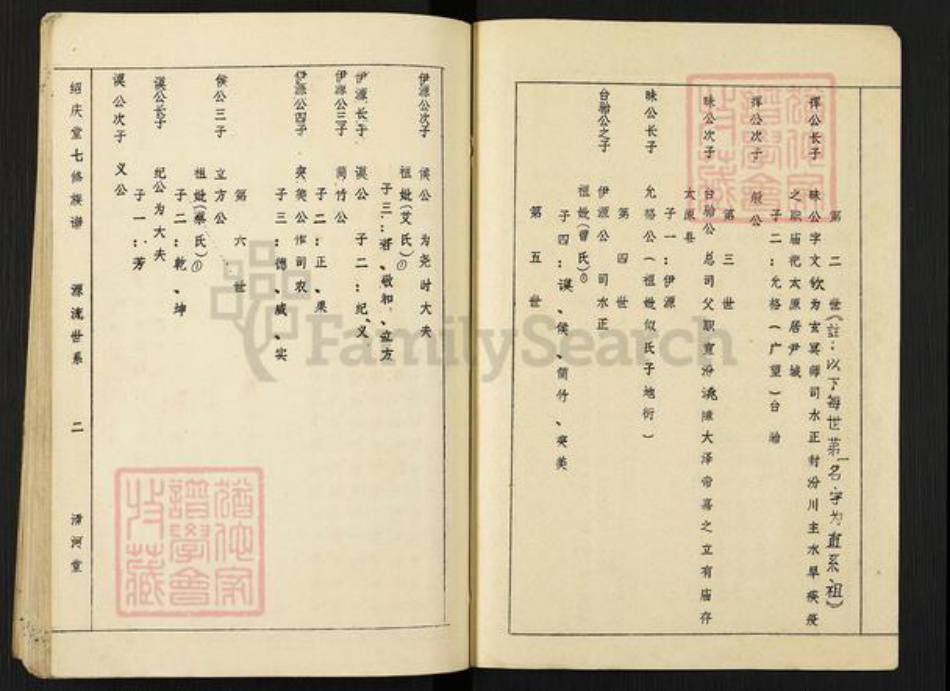 第二世(註:以下每世第一名字为直系祖)
挥公长子 昧公字文钦为玄冥师司水正封汾川主水旱疾疫
之职庙祀太原居尹城
子二:允格(广望)台骀
挥公次子 般公
第三世
昧公次子 台骀公 总司父职宣汾洮障大泽帝嘉之立有庙存
太原县
子一:伊源
昧公长子 允格公(祖妣似氏子地衍)
第四世
台骀公之子 伊源公 司水正
祖妣(曾氏)①
子四:谟、侯、简竹、夹美
第五世
伊源公次子 侯公 为尧时大夫
祖妣(艾氏)①
子三:者、敬和、立方
伊源长子 谟公 子二:纪、义
伊源公三子 简竹公
子二:正、果
伊源公四子 夹美公作司农
子三:德、威、实
第六世
侯公三子 立方公
祖妣(蔡氏)①
子二:乾、坤
谟公长子 纪公为大夫
子一:芳
谟公次子 义公
绍庆堂七修族谱 源流世系 二 清河堂
FamilySearch